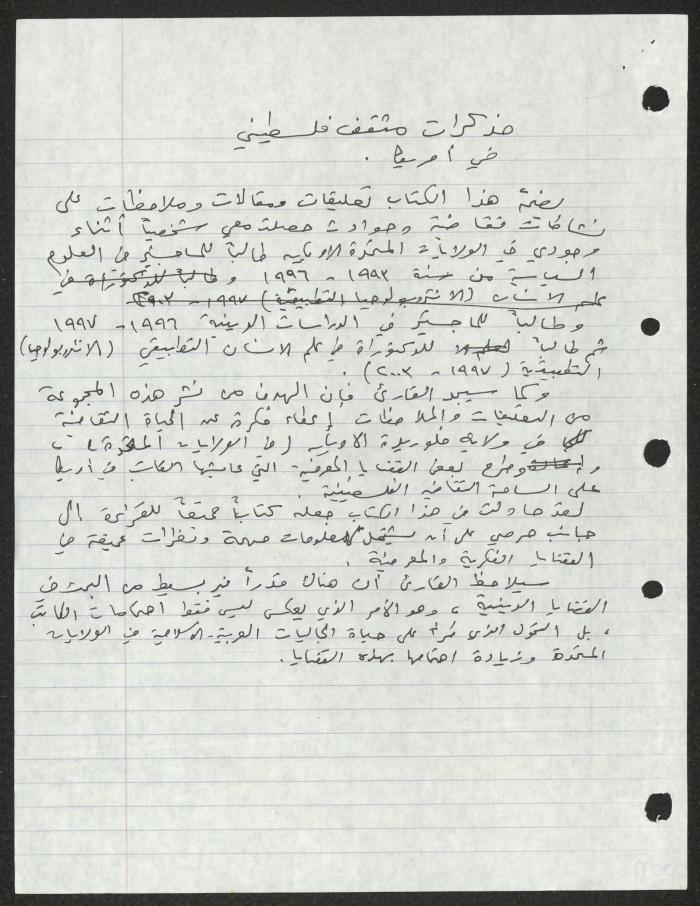 مذكرات مثقف فلسطيني
في أمريكا .
يضم هذا الكتاب تعليقات ومقالات وملاحظات على
نشاطات ثقافية وحوادث حصلت معي شخصياً أثناء
وجودي في الولايات المتحدة الامريكية طالباً للماجستير في العلوم
السياسية من سنة ١٩٩٣ - ١٩٩٦ وطالباً للدكتوراة في
علم الانسان (الانثروبولوجيا التطبيقية) ١٩٩٧ - ٢٠٠٣
وطالباً للماجستير في الدراسات الدينية ١٩٩٦ - ١٩٩٧
ثم طالباً للدكتوراة في علم الانسان التطبيقي (الانثروبولوجيا
التطبيقية) (١٩٩٧ - ٢٠٠٣) .
وكما سيجد القارئ فإن الهدف من نشر هذه المجموعة
من التعليقات والملاحظات إعطاء فكرة عن الحياة الثقافية
في ولاية فلوريدا (في الولايات المتحدة)
وطرح بعض القضايا المعرفية التي عايشها الكاتب في أمريكا
على الساحة الثقافية الفلسطينية .
لقد حاولت في هذا الكتاب جعله كتاباً ممتعاً للقراءة الى
جانب حرصي على أن يشتمل معلومات مهمة ونظرات عميقة في
القضايا الفكرية والمعرفية .
سيلاحظ القارئ أن هناك قدراً غير بسيط من البحث في
القضايا الدينية ، وهو الأمر الذي يعكس ليس فقط اهتمامات الكاتب
، بل التحول الذي طرأ على حياة الجاليات العربية - الاسلامية في الولايات
المتحدة وزيادة اهتمامها بهذه القضايا .